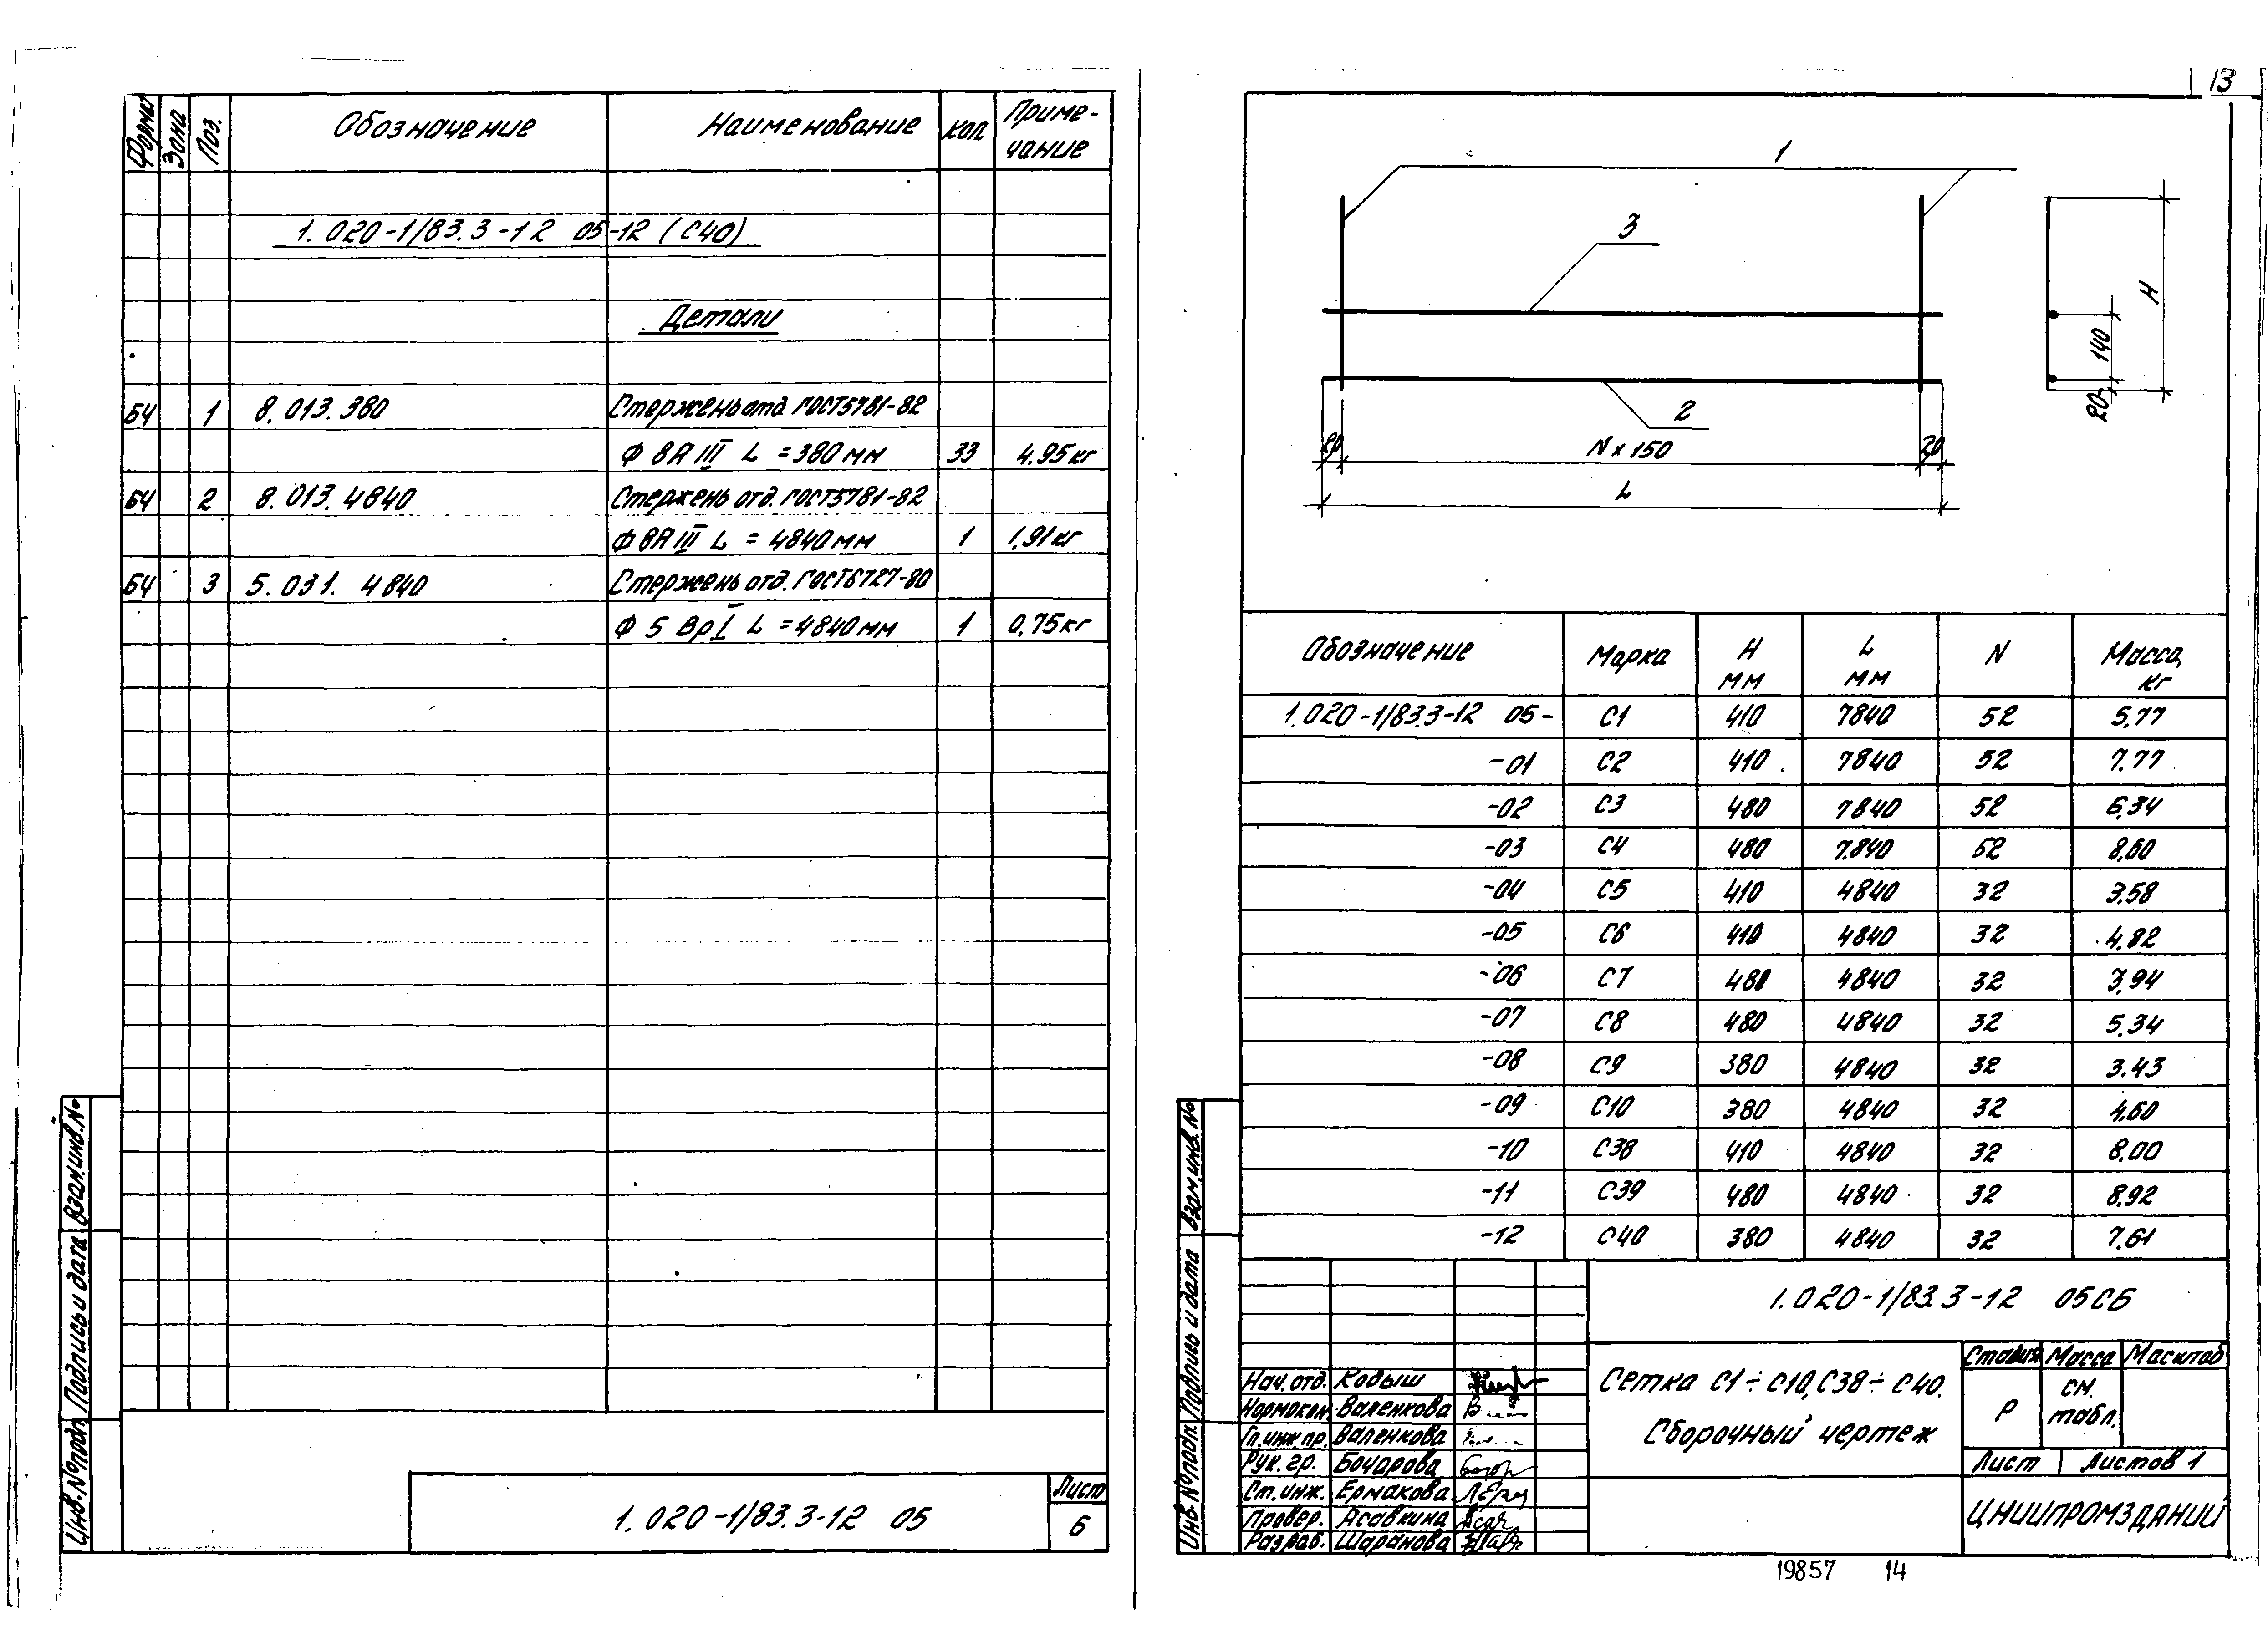 Формат Зона Поз. Обозначение Наименование Кол. Приме-
чание
1.020-1/83.3-12 05-12 (С40)
Детали
БЧ 1 8.013.380 Стержень отд. ГОСТ5781-82
Ф 8А III L = 380 мм 33 4.95 кг
БЧ 2 8.013.4840 Стержень отд. ГОСТ5781-82
Ф 8А III L = 4840 мм 1 1,91 кг
БЧ 3 5.031.4840 Стержень отд. ГОСТ6727-80
Ф 5 ВрI L = 4840 мм 1 0,75 кг
Взам.инв.№
Подпись и дата
Инв.№подл.
1.020-1/83.3-12 05
Лист
6
13
1
3
2
H
140
20
20
N х 150
20
L
Обозначение Марка H
мм L
мм N Масса,
кг
1.020-1/83.3-12 05- С1 410 7840 52 5,77
-01 С2 410 7840 52 7.77
-02 С3 480 7840 52 6,34
-03 С4 480 7840 52 8,60
-04 С5 410 4840 32 3,58
-05 С6 410 4840 32 4,82
-06 С7 480 4840 32 3,94
-07 С8 480 4840 32 5,34
-08 С9 380 4840 32 3.43
-09 С10 380 4840 32 4,60
-10 С38 410 4840 32 8,00
-11 С39 480 4840 32 8,92
-12 С40 380 4840 32 7,61
1.020-1/83.3-12 05СБ
Нач.отд. Кодыш
Нормокон. Валенкова
Гл.инж.пр. Валенкова
Рук.гр. Бочарова
Ст.инж. Ермакова
Провер. Асавкина
Разраб. Шаранова
Сетка С1÷С10, С38÷С40.
Сборочный чертеж
Стадия Масса Масштаб
Р см.
табл.
Лист Листов 1
ЦНИИПРОМЗДАНИЙ
Взам.инв.№
Подпись и дата
Инв.№подл.
19857 14